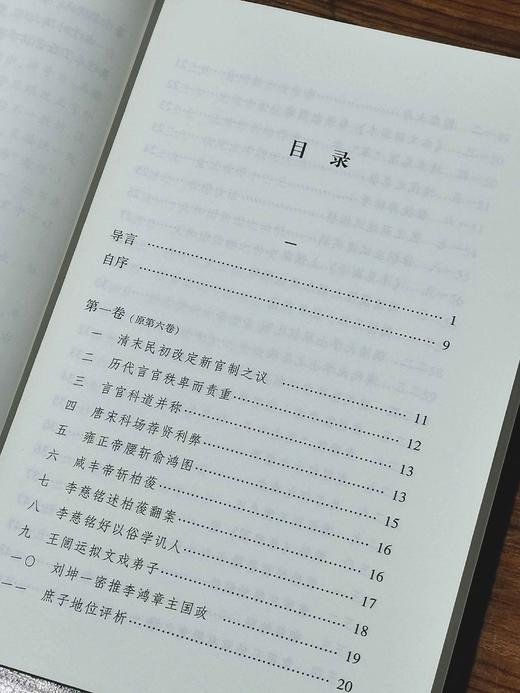 目 录
一
导言 …… 1
自序 …… 9
第一卷（原第六卷）
一 清末民初改定新官制之议 …… 11
二 历代言官秩卑而责重 …… 12
三 言官科道并称 …… 13
四 唐宋科场荐贤利弊 …… 13
五 雍正帝腰斩俞鸿图 …… 15
六 咸丰帝斩柏葰 …… 16
七 李慈铭述柏葰翻案 …… 16
八 李慈铭好以俗学讥人 …… 17
九 王闿运拟文戏弟子 …… 18
一〇 刘坤一密推李鸿章主国政 …… 19
一一 庶子地位评析 …… 20